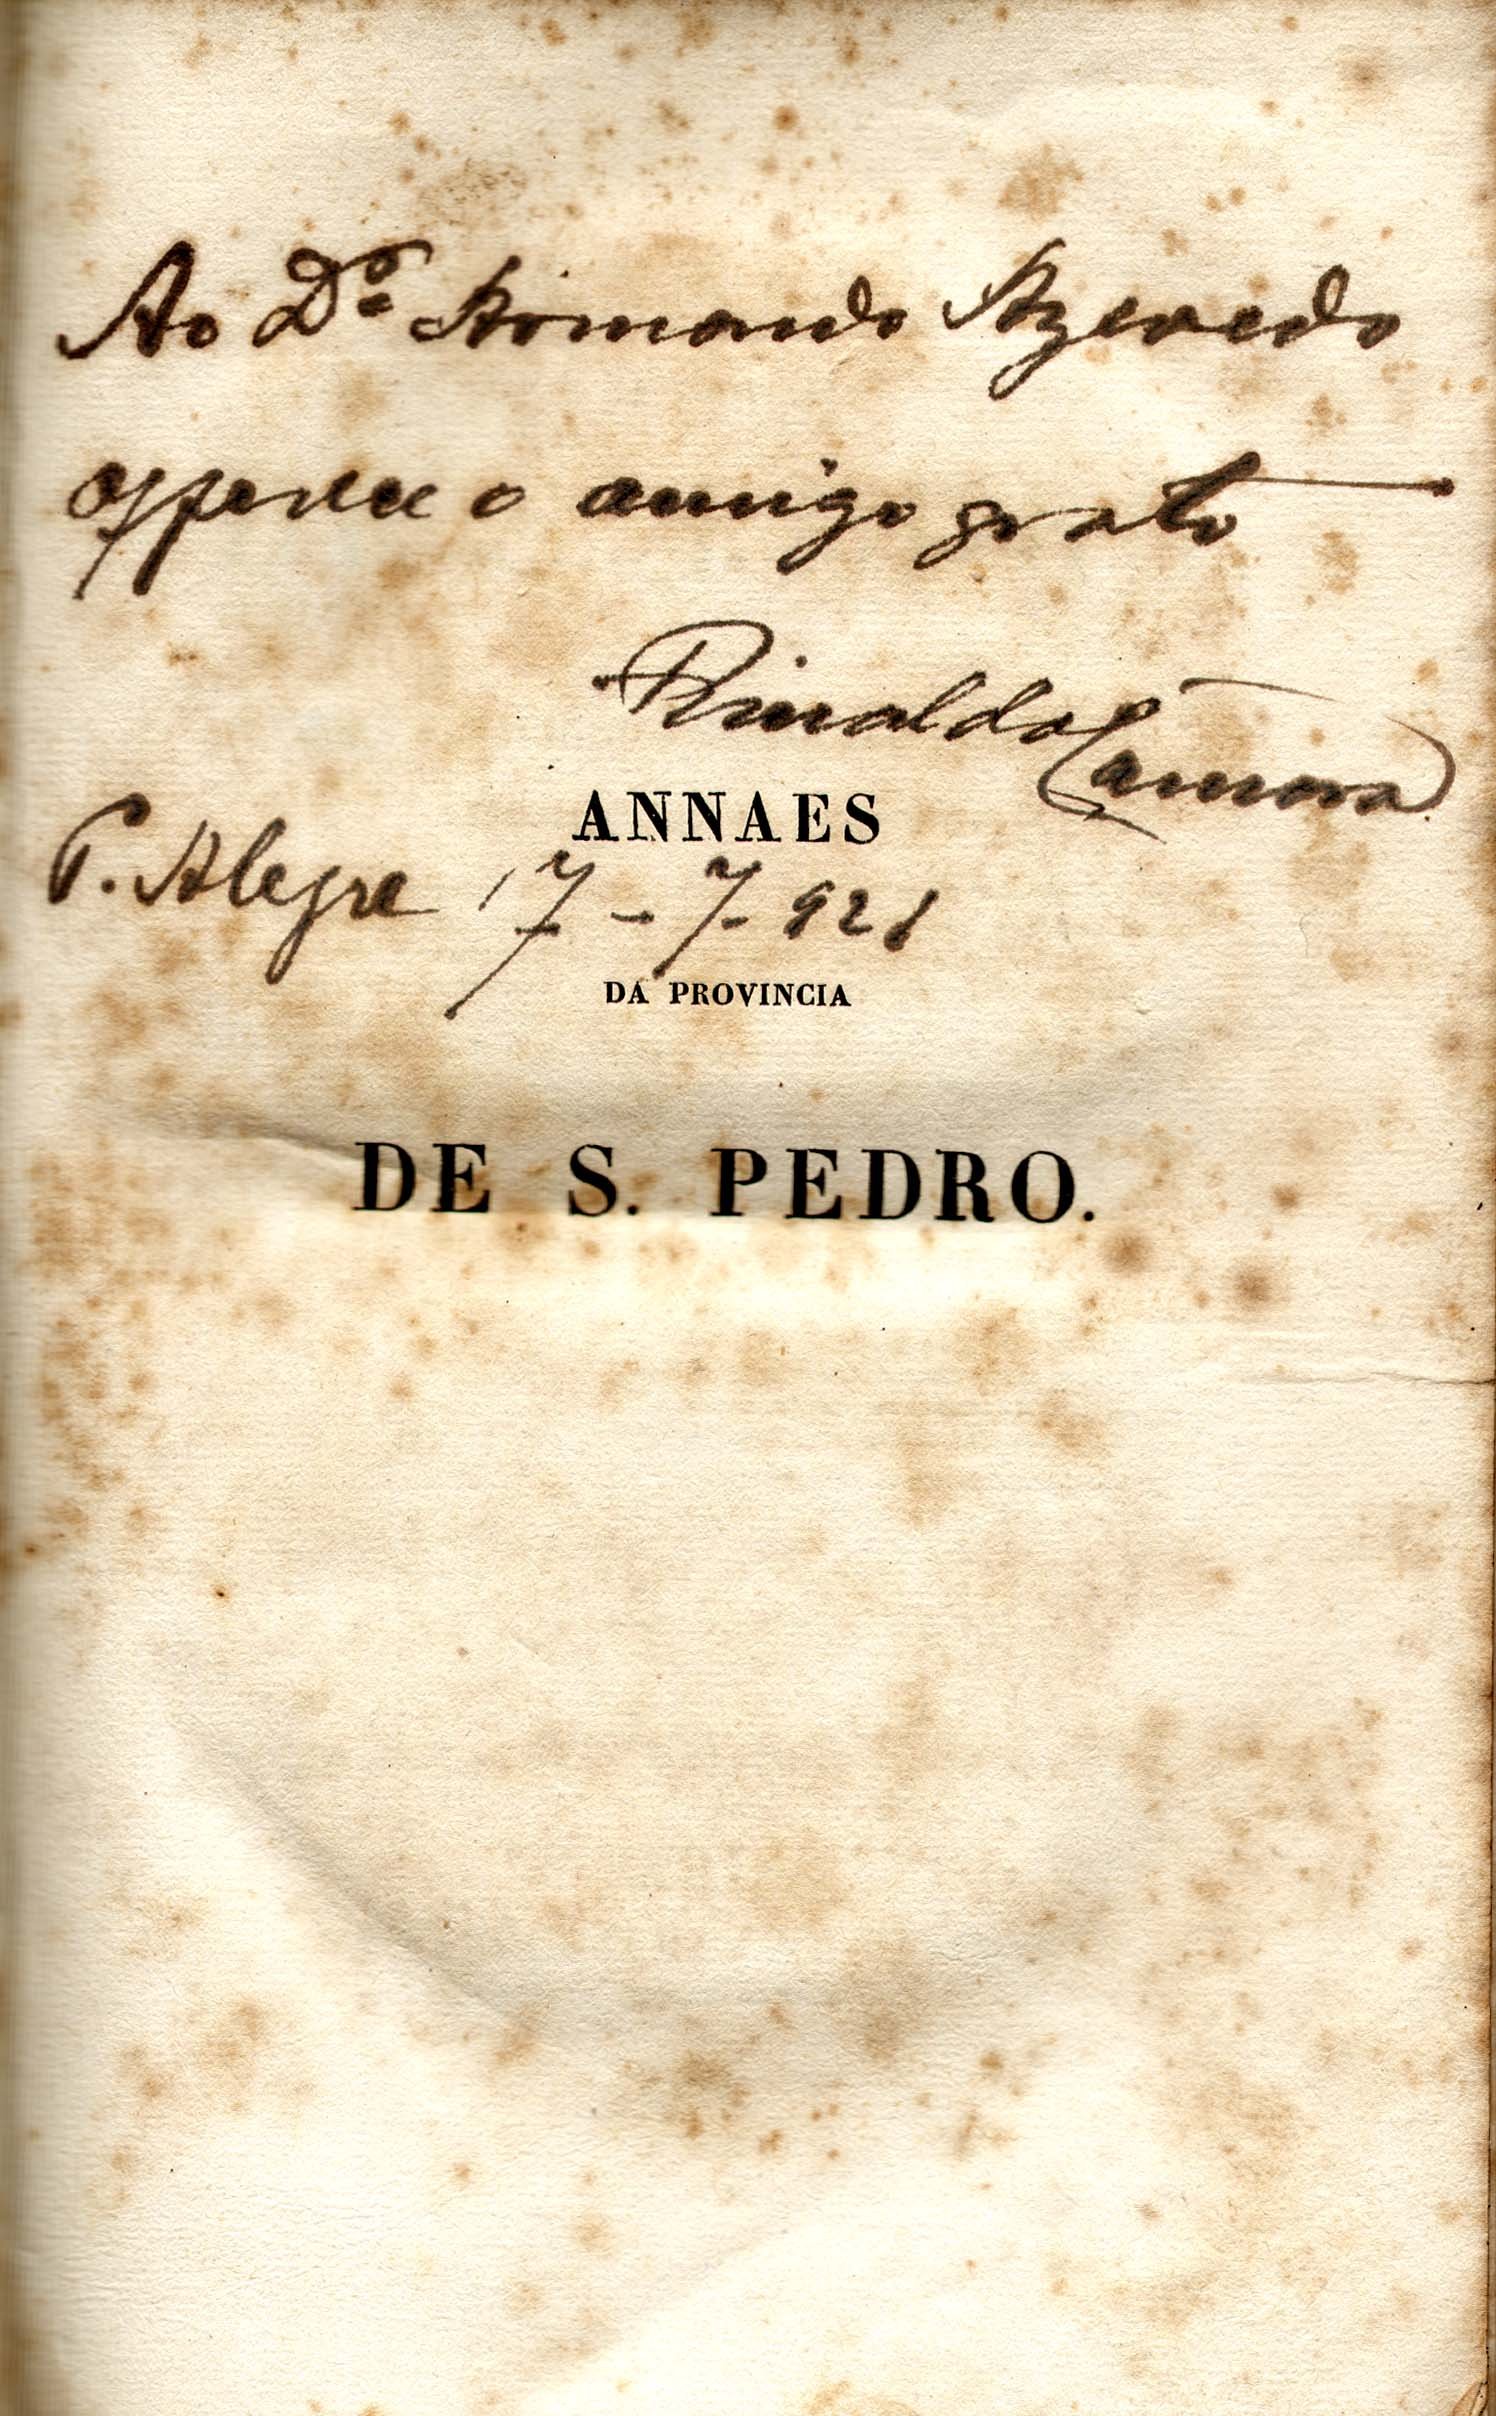 Ao Dr. Armando Azevedo
offerece o amigo grato
Rinaldo Camara
ANNAES
P. Alegre 17-7-921
DA PROVINCIA
DE S. PEDRO.